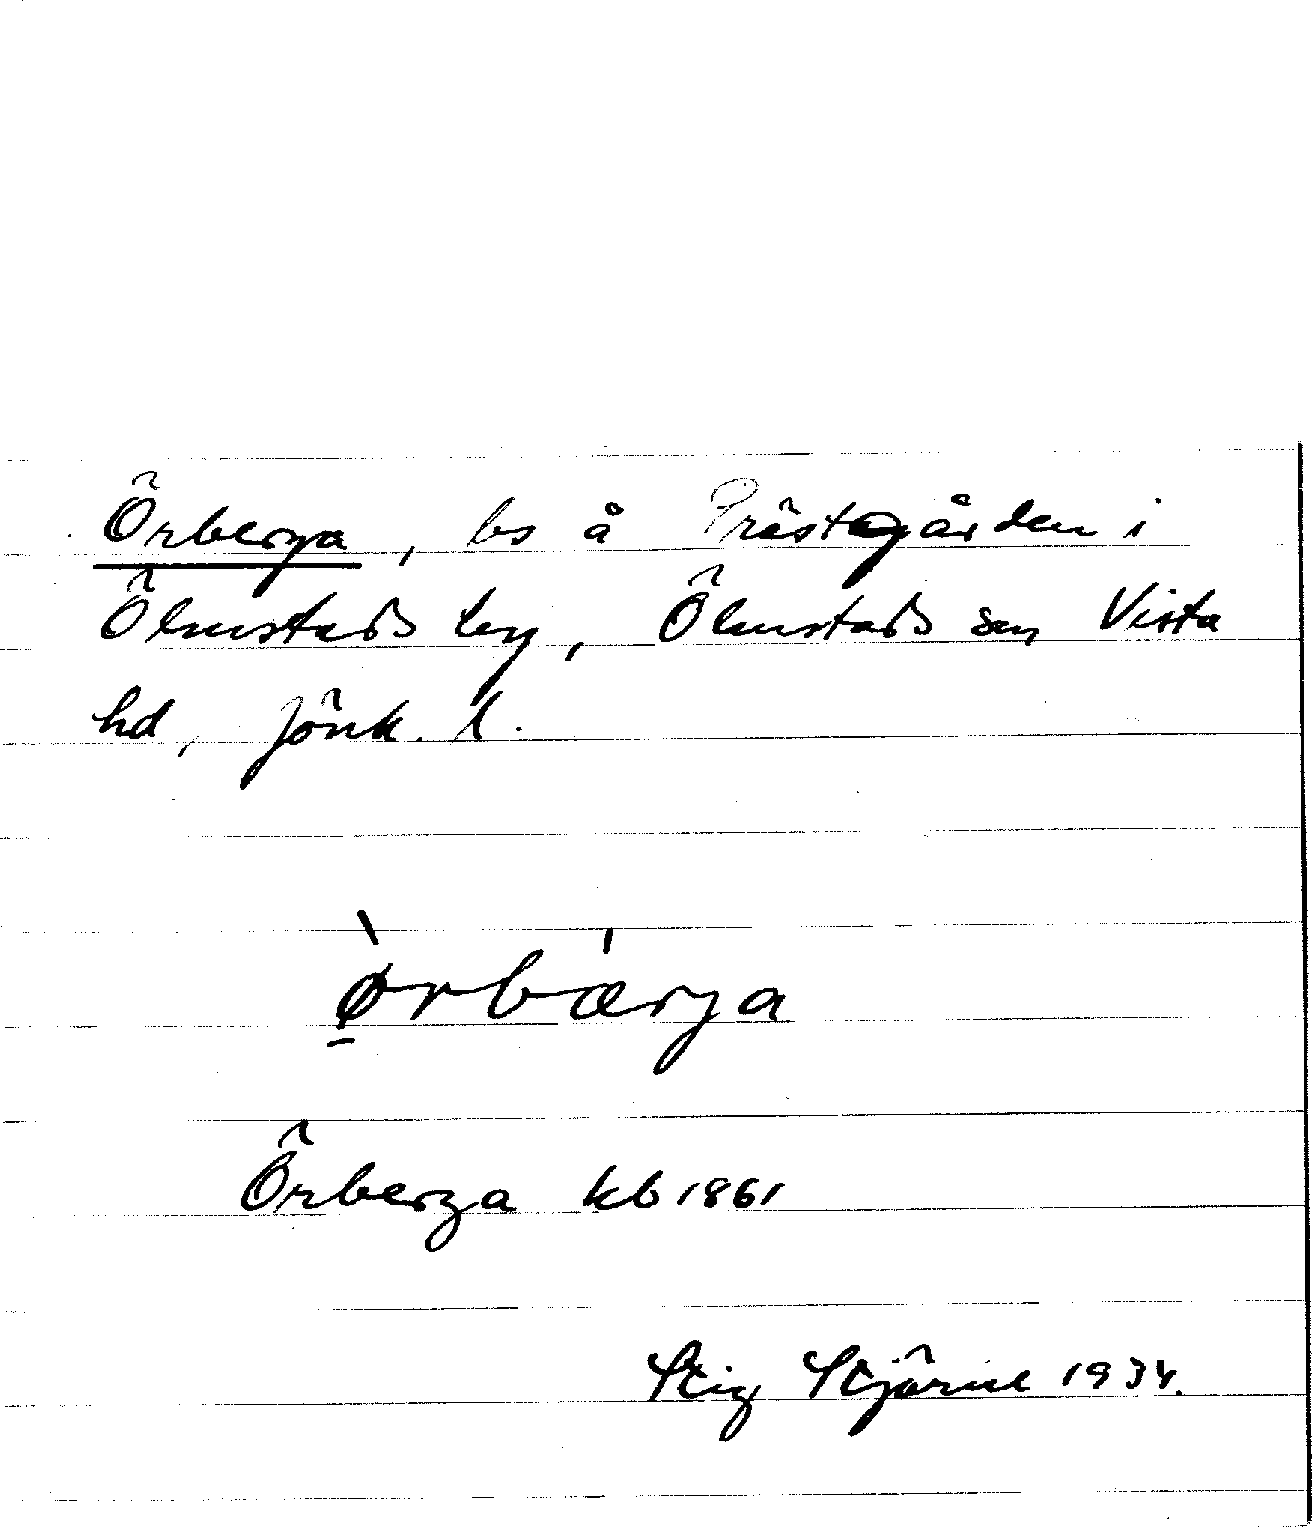 Örberga, ls å Prästgården i
Ölmstads by, Ölmstads sn, Vista
hd, Jönk. l.
ø̱̀rbǽrja
Örberga kb 1861
Stig Stjärne 1934.